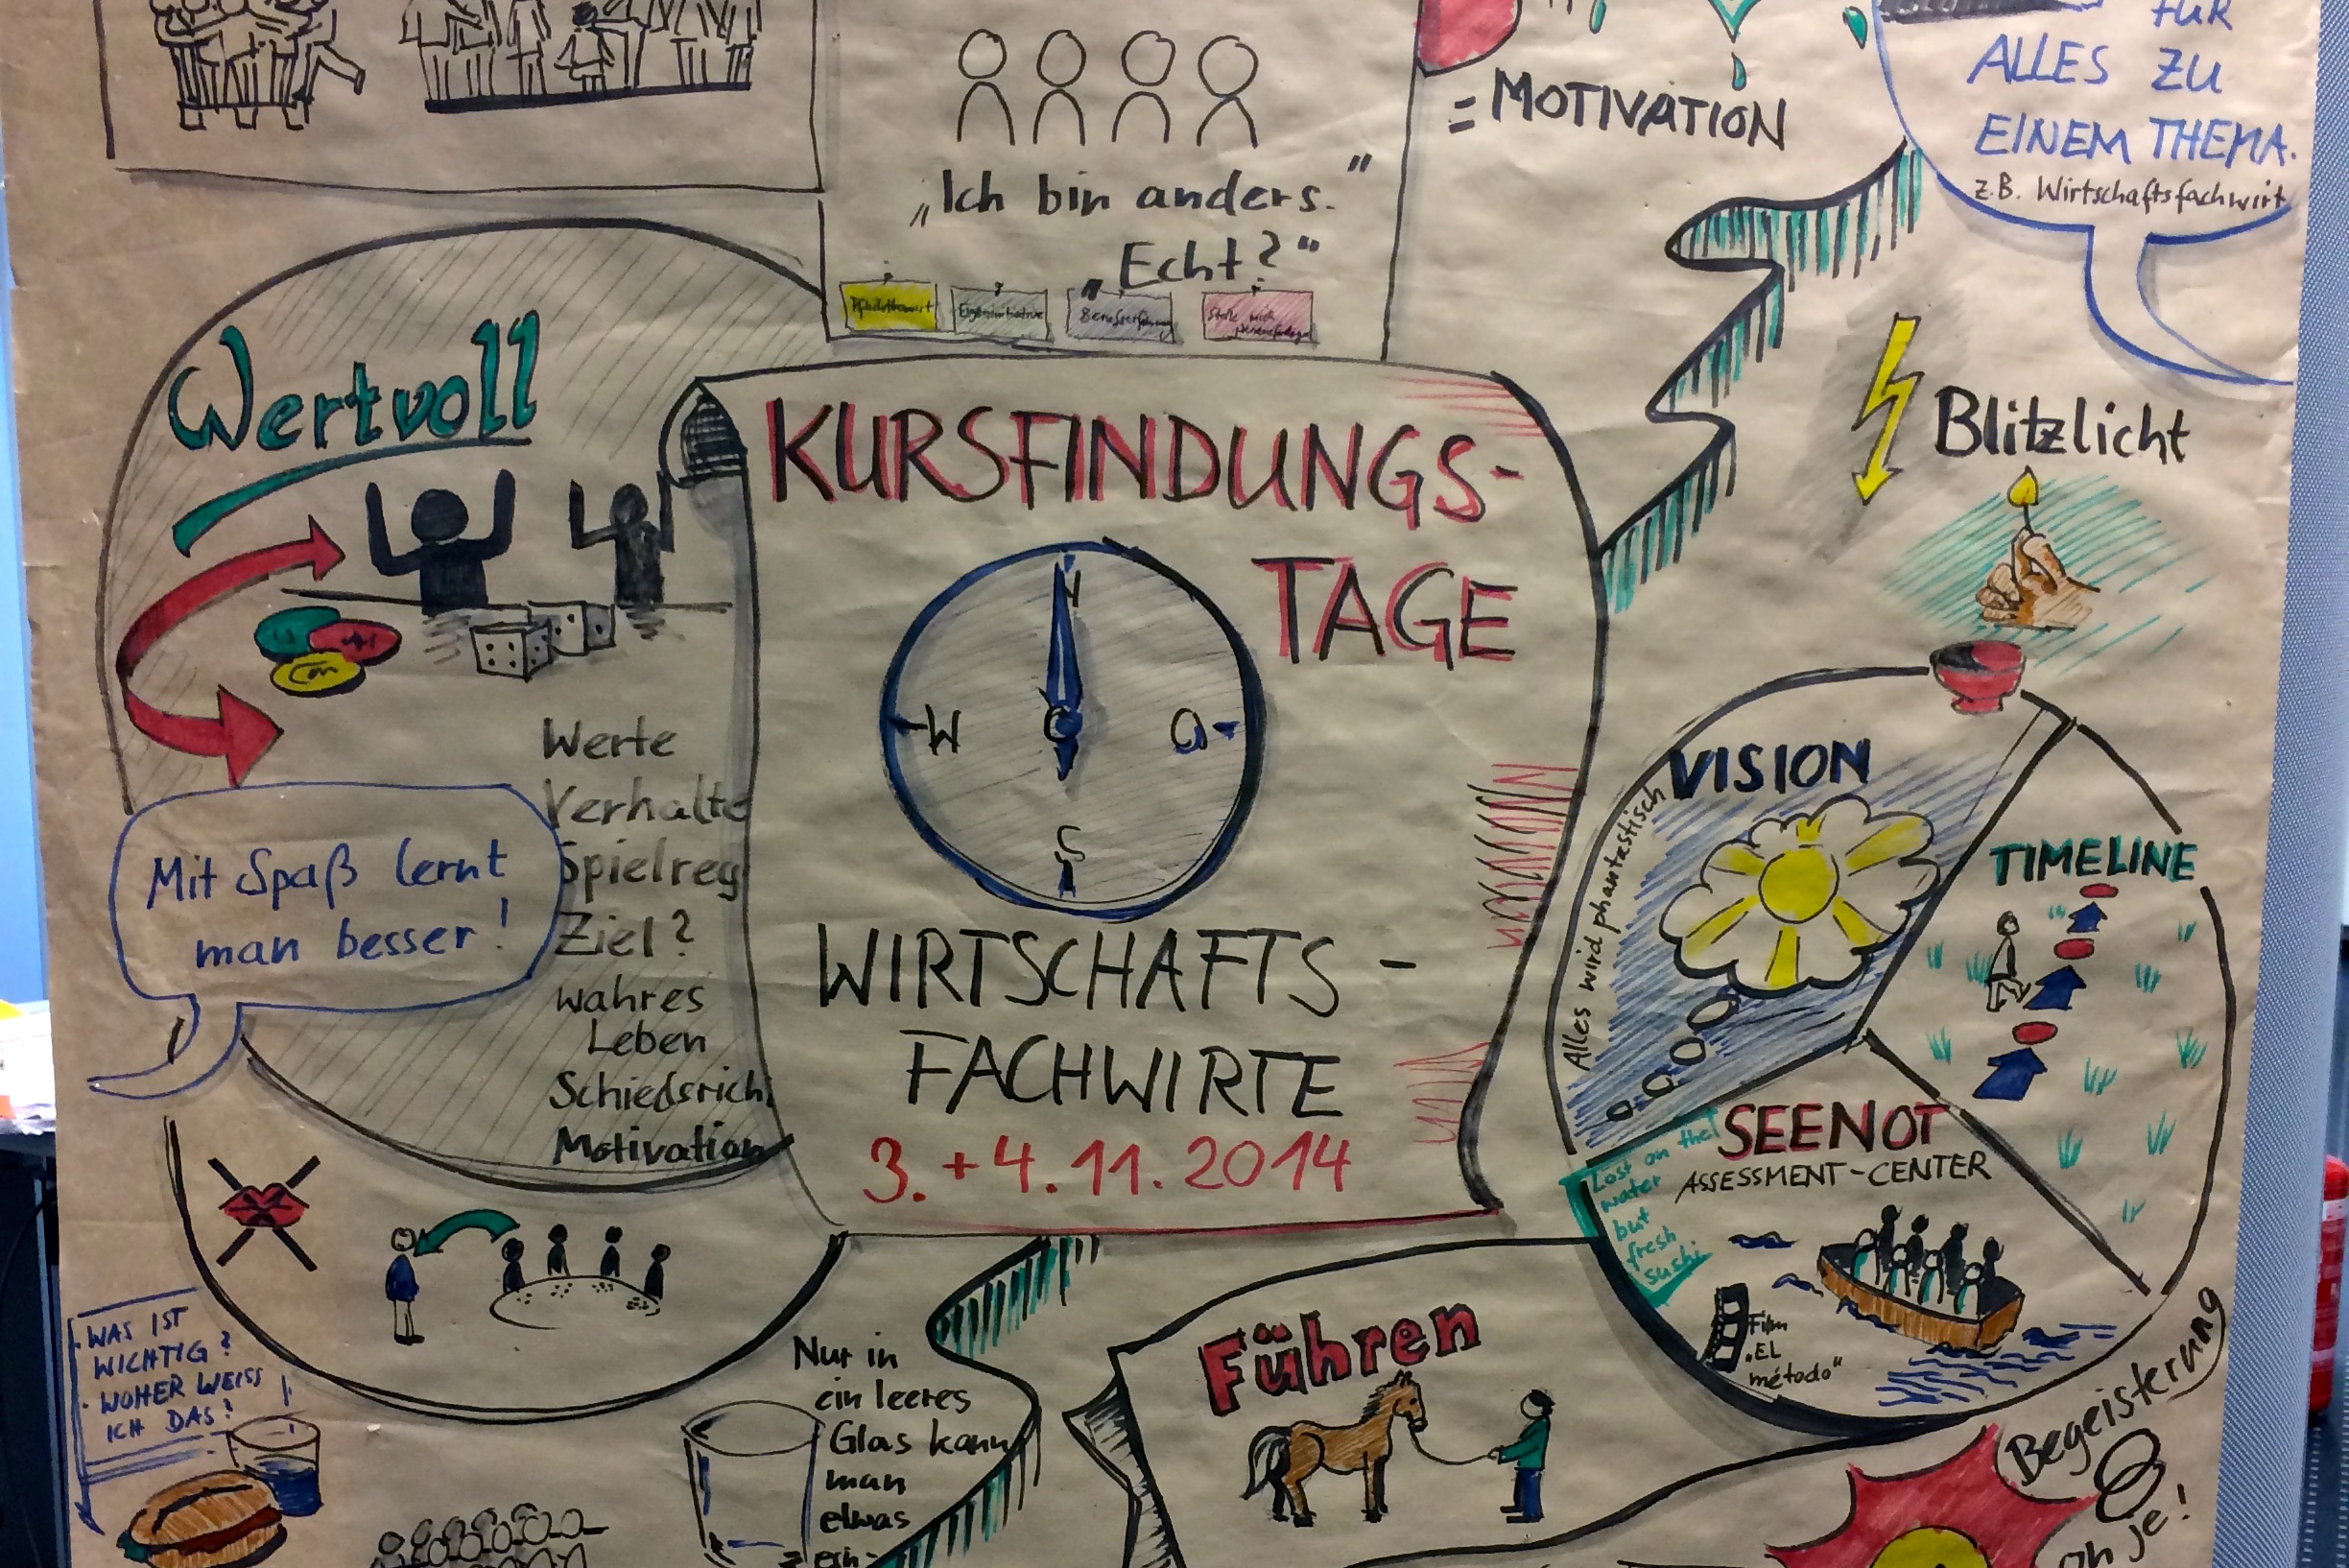 = MOTIVATION
FÜR
ALLES ZU
EINEM THEMA.
z.B. Wirtschaftsfachwirt
„Ich bin anders.”
„Echt?”
Eigeninitiative
Wertvoll
Werte
Verhalte
Spielreg
Ziel?
wahres
Leben
Schiedsrich
Motivation
Mit Spaß lernt
man besser!
KURSFINDUNGS-
TAGE
N
W
O
S
WIRTSCHAFTS-
FACHWIRTE
3. + 4. 11. 2014
Blitzlicht
VISION
Alles wird phantastisch
TIMELINE
SEENOT
ASSESSMENT-CENTER
Lost on the
water
but
fresh
sushi
Film
„EL
método“
· WAS IST
WICHTIG?
· WOHER WEISS
ICH DAS?
Nur in
ein leeres
Glas kann
man
etwas
Führen
Begeisterung
oh je!